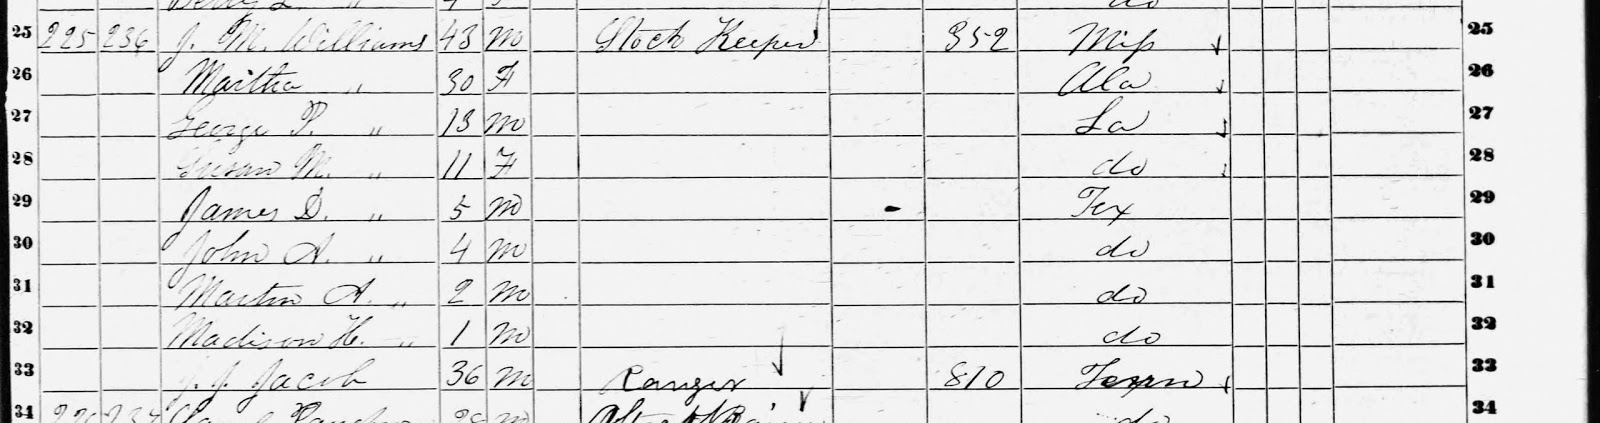 25 225 236 J. M. Williams 43 m Stock Keeper 352 Miss 25
26 Martha " 30 F Ala 26
27 George P. " 13 m La 27
28 Susan M. " 11 F do 28
29 James D. " 5 m Tex 29
30 John A. " 4 m do 30
31 Martin A. " 2 m do 31
32 Madison H. " 1 m do 32
33 J. J. Jacob 36 m Ranger 810 Tenn 33
34 34